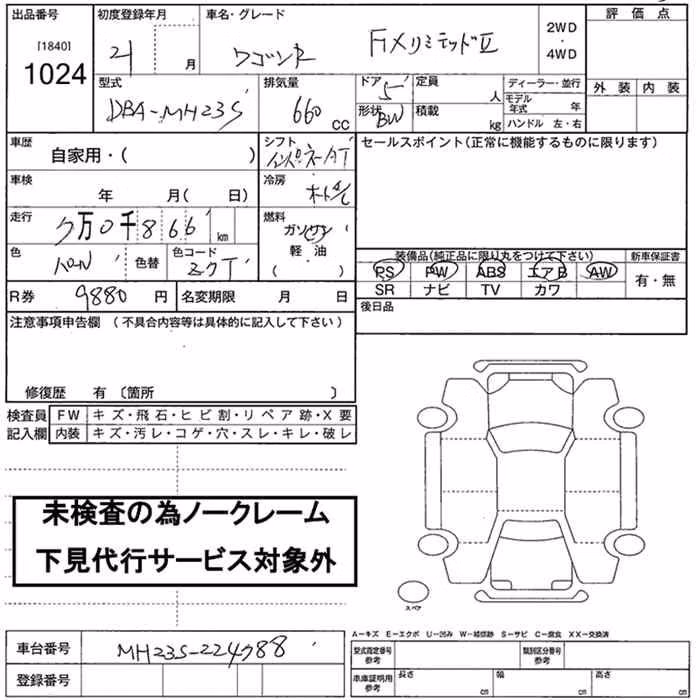 出品番号 初度登録年月 車名・グレード 評価点
[1840] 2WD
1024 21 月 ワゴンR FXリミテッドⅡ ・
4WD
型式 排気量 ドア 5 定員 人 ディーラー・並行 外装 内装
DBA-MH23S 660 cc 形状 BW 積載 kg モデル年式 年
ハンドル 左・右
車歴 自家用・( ) シフト インパネAT セールスポイント(正常に機能するものに限ります)
車検 年 月( 日) 冷房 オートA/C
走行 7万0千866 km 燃料 ガソリン
軽・油
( )
色 色替 色コード ZJT 装備品(純正品に限り丸をつけて下さい) 新車保証書
PS PW ABS エアB AW 有・無
SR ナビ TV カワ
R券 9880 円 名変期限 月 日 後日品
注意事項申告欄 (不具合内容等は具体的に記入して下さい)
修復歴 有 〔箇所 〕
検査員 FW キズ・飛石・ヒビ割・リペア跡・X要
記入欄 内装 キズ・汚レ・コゲ・穴・スレ・キレ・破レ
未検査の為ノークレーム
下見代行サービス対象外
スペア
A-キズ E-エクボ U-凹み W-補修跡 S-サビ C-腐食 XX-交換済
車台番号 MH23S-224788 型式指定番号 参考 類別区分番号 参考
登録番号 車庫証明用 参考 長さ cm 幅 cm 高さ cm